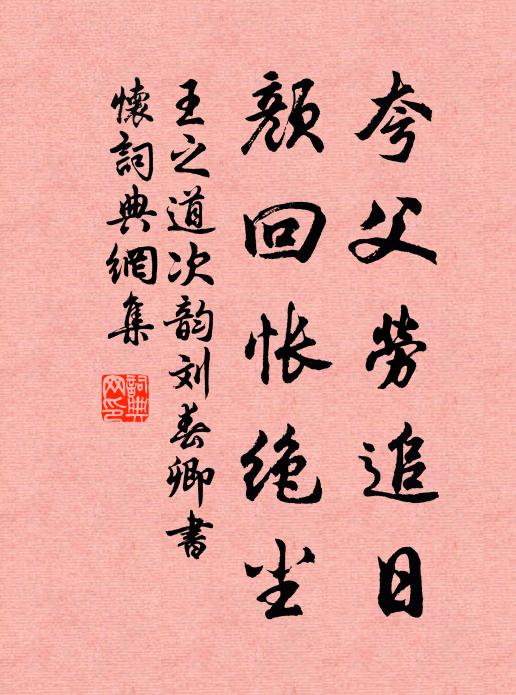 夸父劳追日
颜回怅绝尘
王之道次韵刘春卿书
懷詞典網集
詞典
网印